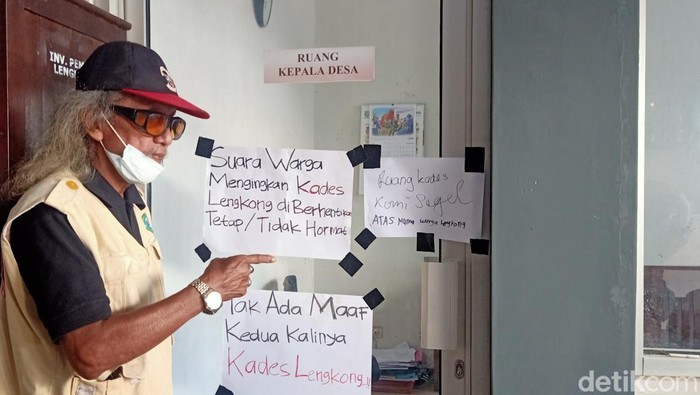 INV. PEN
LENG
RUANG
KEPALA DESA
SUARA WARGA
MENGINGKAN KADES
LENGKONG di BERHENTIKAN
TETAP/TIDAK HORMAT
Ruang kades
Kami Segel
ATAS NAMA WARGA Lengkong
TAK ADA MAAF
KEDUA KALINYA
KADES LENGKONG..!!
detikcom